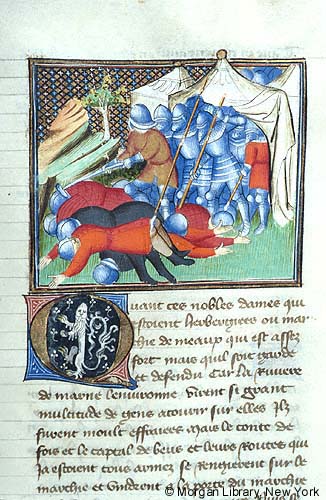 Quant ces nobles dames qui
estoient herbergiees ou mar
chie de meaux qui est assez
fort mais quil soit garde
et defendu Car la Riviere
de marne lenvironne Virent si grant
multitude de gens acourir sur elles Ilz
furent moult effraiees Mais le conte de
fois et le captal de beus et leurs Routes qui
ja estoient tous armez se rengierent sur le
marchie et vindrent a la porte du marchie
© Morgan Library, New York